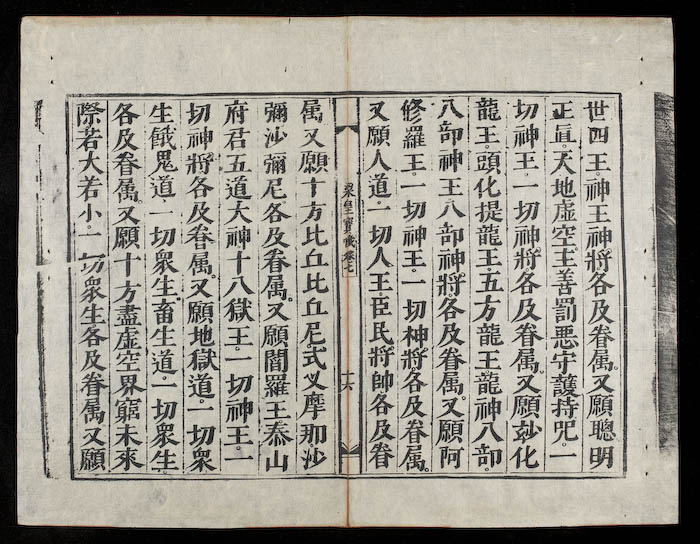 世四王。神王神將各及眷属。又願聰明
正直。天地虛空。主善罰惡守護持咒。一
切神王。一切神將。各及眷属。又願玅化
龍王。頭化提龍王。五方龍王龍神八部。
八部神王八部神將。各及眷属。又願阿
修羅王。一切神王。一切神將。各及眷属。
又願人道。一切人王。臣民將帥各及眷
梁皇寳懴卷七
十六
属又願十方比丘比丘尼。式叉摩那沙
彌沙彌尼。各及眷属。又願閻羅王。泰山
府君五道大神十八獄王。一切神王。一
切神將各及眷属。又願地獄道。一切衆
生餓鬼道。一切衆生畜生道。一切衆生。
各及眷属。又願十方盡虛空界窮未來
際若大若小。一切衆生各及眷属又願